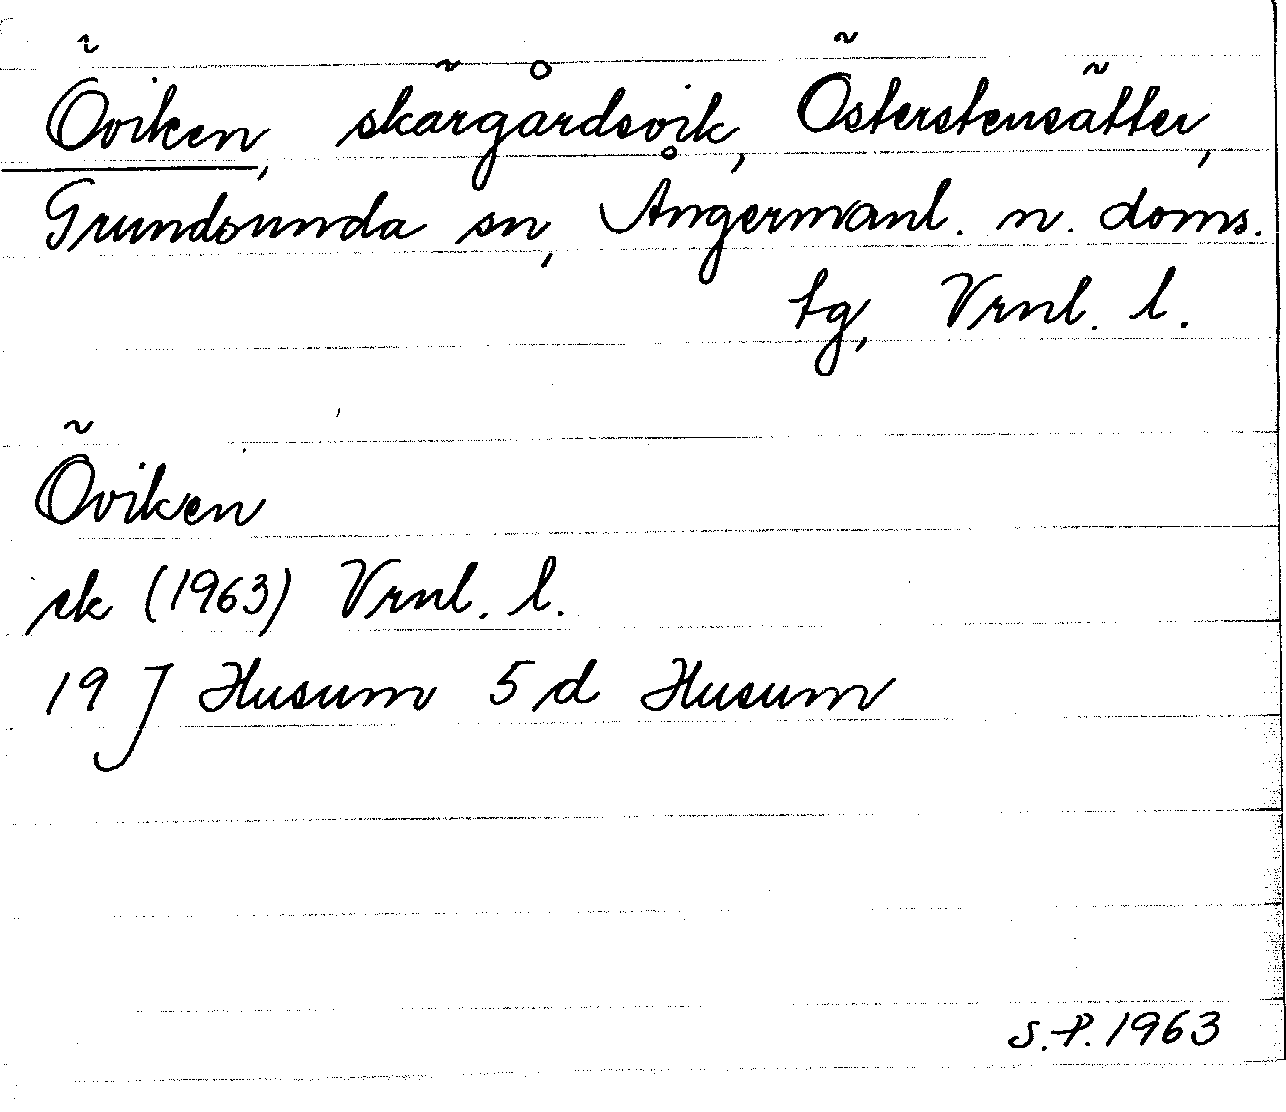 Öviken, skärgårdsvik, Österstensätter,
Grundsunda sn, Ångermanl. n. doms.
tg, Vrnl. l.
Öviken
ek (1963) Vrnl. l.
19 J Husum 5 d Husum
S.P. 1963